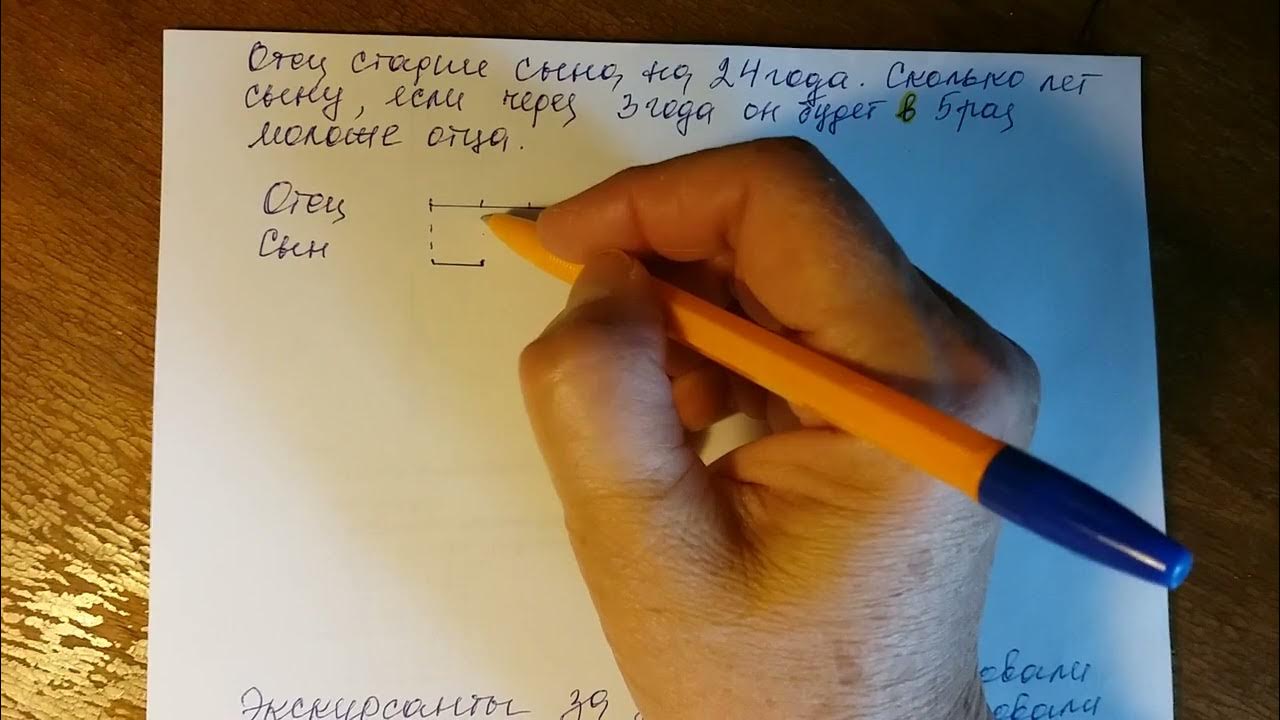 Отец старше сына на 24 года. Сколько лет
сыну, если через 3 года он будет в 5 раз
моложе отца.
Отец
Сын
Экскурсанты за